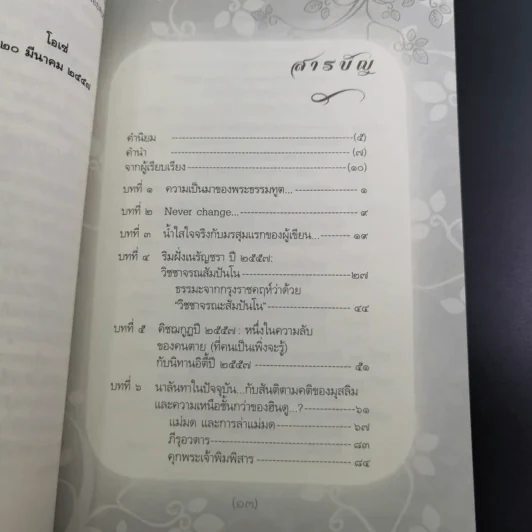 โอเช่
๒๐ มีนาคม ๒๕๕๗
สารบัญ
คำนิยม ---(๕)
คำนำ --- (๗)
จากผู้เรียบเรียง ---(๑๐)
บทที่ ๑ ความเป็นมาของพระธรรมทูต... --- ๑
บทที่ ๒ Never change... --- ๙
บทที่ ๓ น้ำใสใจจริงกับมรสุมแรกของผู้เขียน... --- ๑๙
บทที่ ๔ ริมฝั่งเนรัญชรา ปี ๒๕๕๗:
วิชชาจรณสัมปันโน ---๒๗
ธรรมะจากกรุงราชคฤห์ว่าด้วย
"วิชชาจรณะสัมปันโน" --- ๔๔
บทที่ ๕ คิชฌกูฏปี ๒๕๕๗: หนึ่งในความลับ
ของคนตาย (ที่คนเป็นเพิ่งจะรู้)
กับนิทานอิตี้ปี ๒๕๕๗ --- ๕๑
บทที่ ๖ นาลันทาในปัจจุบัน...กับสันติตามคติของมุสลิม
และความเหนือชั้นกว่าของฮินดู...? ---๖๑
แม่มด และการล่าแม่มด --- ๖๗
ภีรุอวตาร --- ๘๓
คุกพระเจ้าพิมพิสาร --- ๘๔
(๑๓)